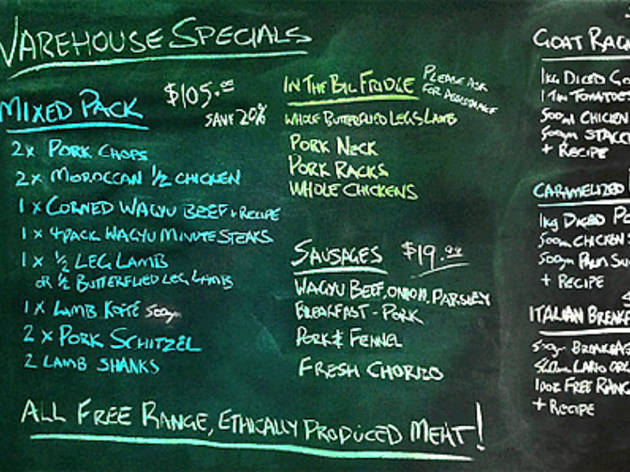 WAREHOUSE SPECIALS
MIXED PACK
$105.00
SAVE 20%
2x PORK CHOPS
2x MOROCCAN 1/2 CHICKEN
1x CORNED WAGYU BEEF + RECIPE
1x 4PACK WAGYU MINUTE STEAKS
1x 1/2 LEG LAMB
OR 1/2 BUTTERFLIED LEG LAMB
1x LAMB KOFTE 500gm
2x PORK SCHITZEL
2 LAMB SHANKS
IN THE BIG FRIDGE
PLEASE ASK
FOR ASSISTANCE
WHOLE BUTTERFLIED LEGS LAMB
PORK NECK
PORK RACKS
WHOLE CHICKENS
SAUSAGES $19.99
WAGYU BEEF, ONION, PARSLEY
BREAKFAST - PORK
PORK & FENNEL
FRESH CHORIZO
ALL FREE RANGE, ETHICALLY PRODUCED MEAT!
GOAT
1kg DICED
1 TIN TOMATOES
500ml CHICKEN
500gm
+ RECIPE
CARAMELIZED
1kg DICED
500ml CHICKEN
500gm PALM
+ RECIPE
ITALIAN
500gm
500ml
10oz FREE
+ RECIPE